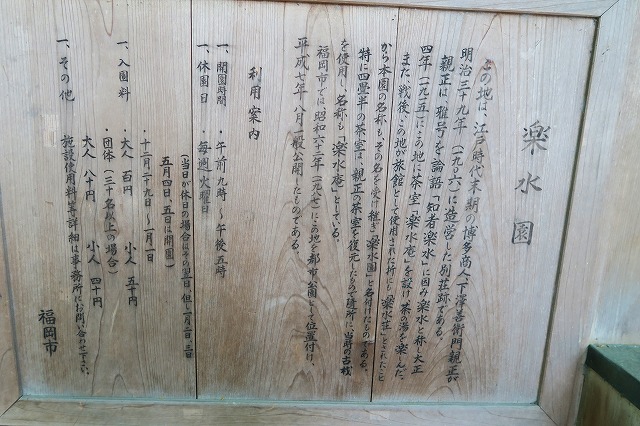 楽水園
この地は、江戸時代末期の博多商人、下澤善右衛門親正が
明治三十九年(一九〇六)に造営した別荘跡である。
親正は雅号を論語「知者楽水」に因み楽水と称し、大正
四年(一九一五)この地に茶室「楽水庵」を設け茶の湯を楽しんだ。
また、戦後、この地が旅館として使用された折にも「楽水荘」とされたこと
から本園の名称も、その名を受け継ぎ「楽水園」と名付けたものである。
特に四畳半の茶室は、親正の茶室を復元したもので随所に、当時の古材
を使用し、名称も「楽水庵」としている。
福岡市では、昭和六十二年(一九八七)にこの地を都市公園として位置付け、
平成七年八月一般公開したものである。
利用案内
一、開園時間 ・午前九時〜午後五時
一、休園日 ・毎週火曜日
(当日が休日の場合はその翌日、但し一月二日、三日
五月四日、五日は開園)
・十二月二十九日〜一月一日
一、入園料 ・大人 百円 小人 五十円
・団体(三十名以上の場合)
大人 八十円 小人 四十円
一、その他 施設使用料等詳細は事務所にお問い合わせ下さい。
福岡市